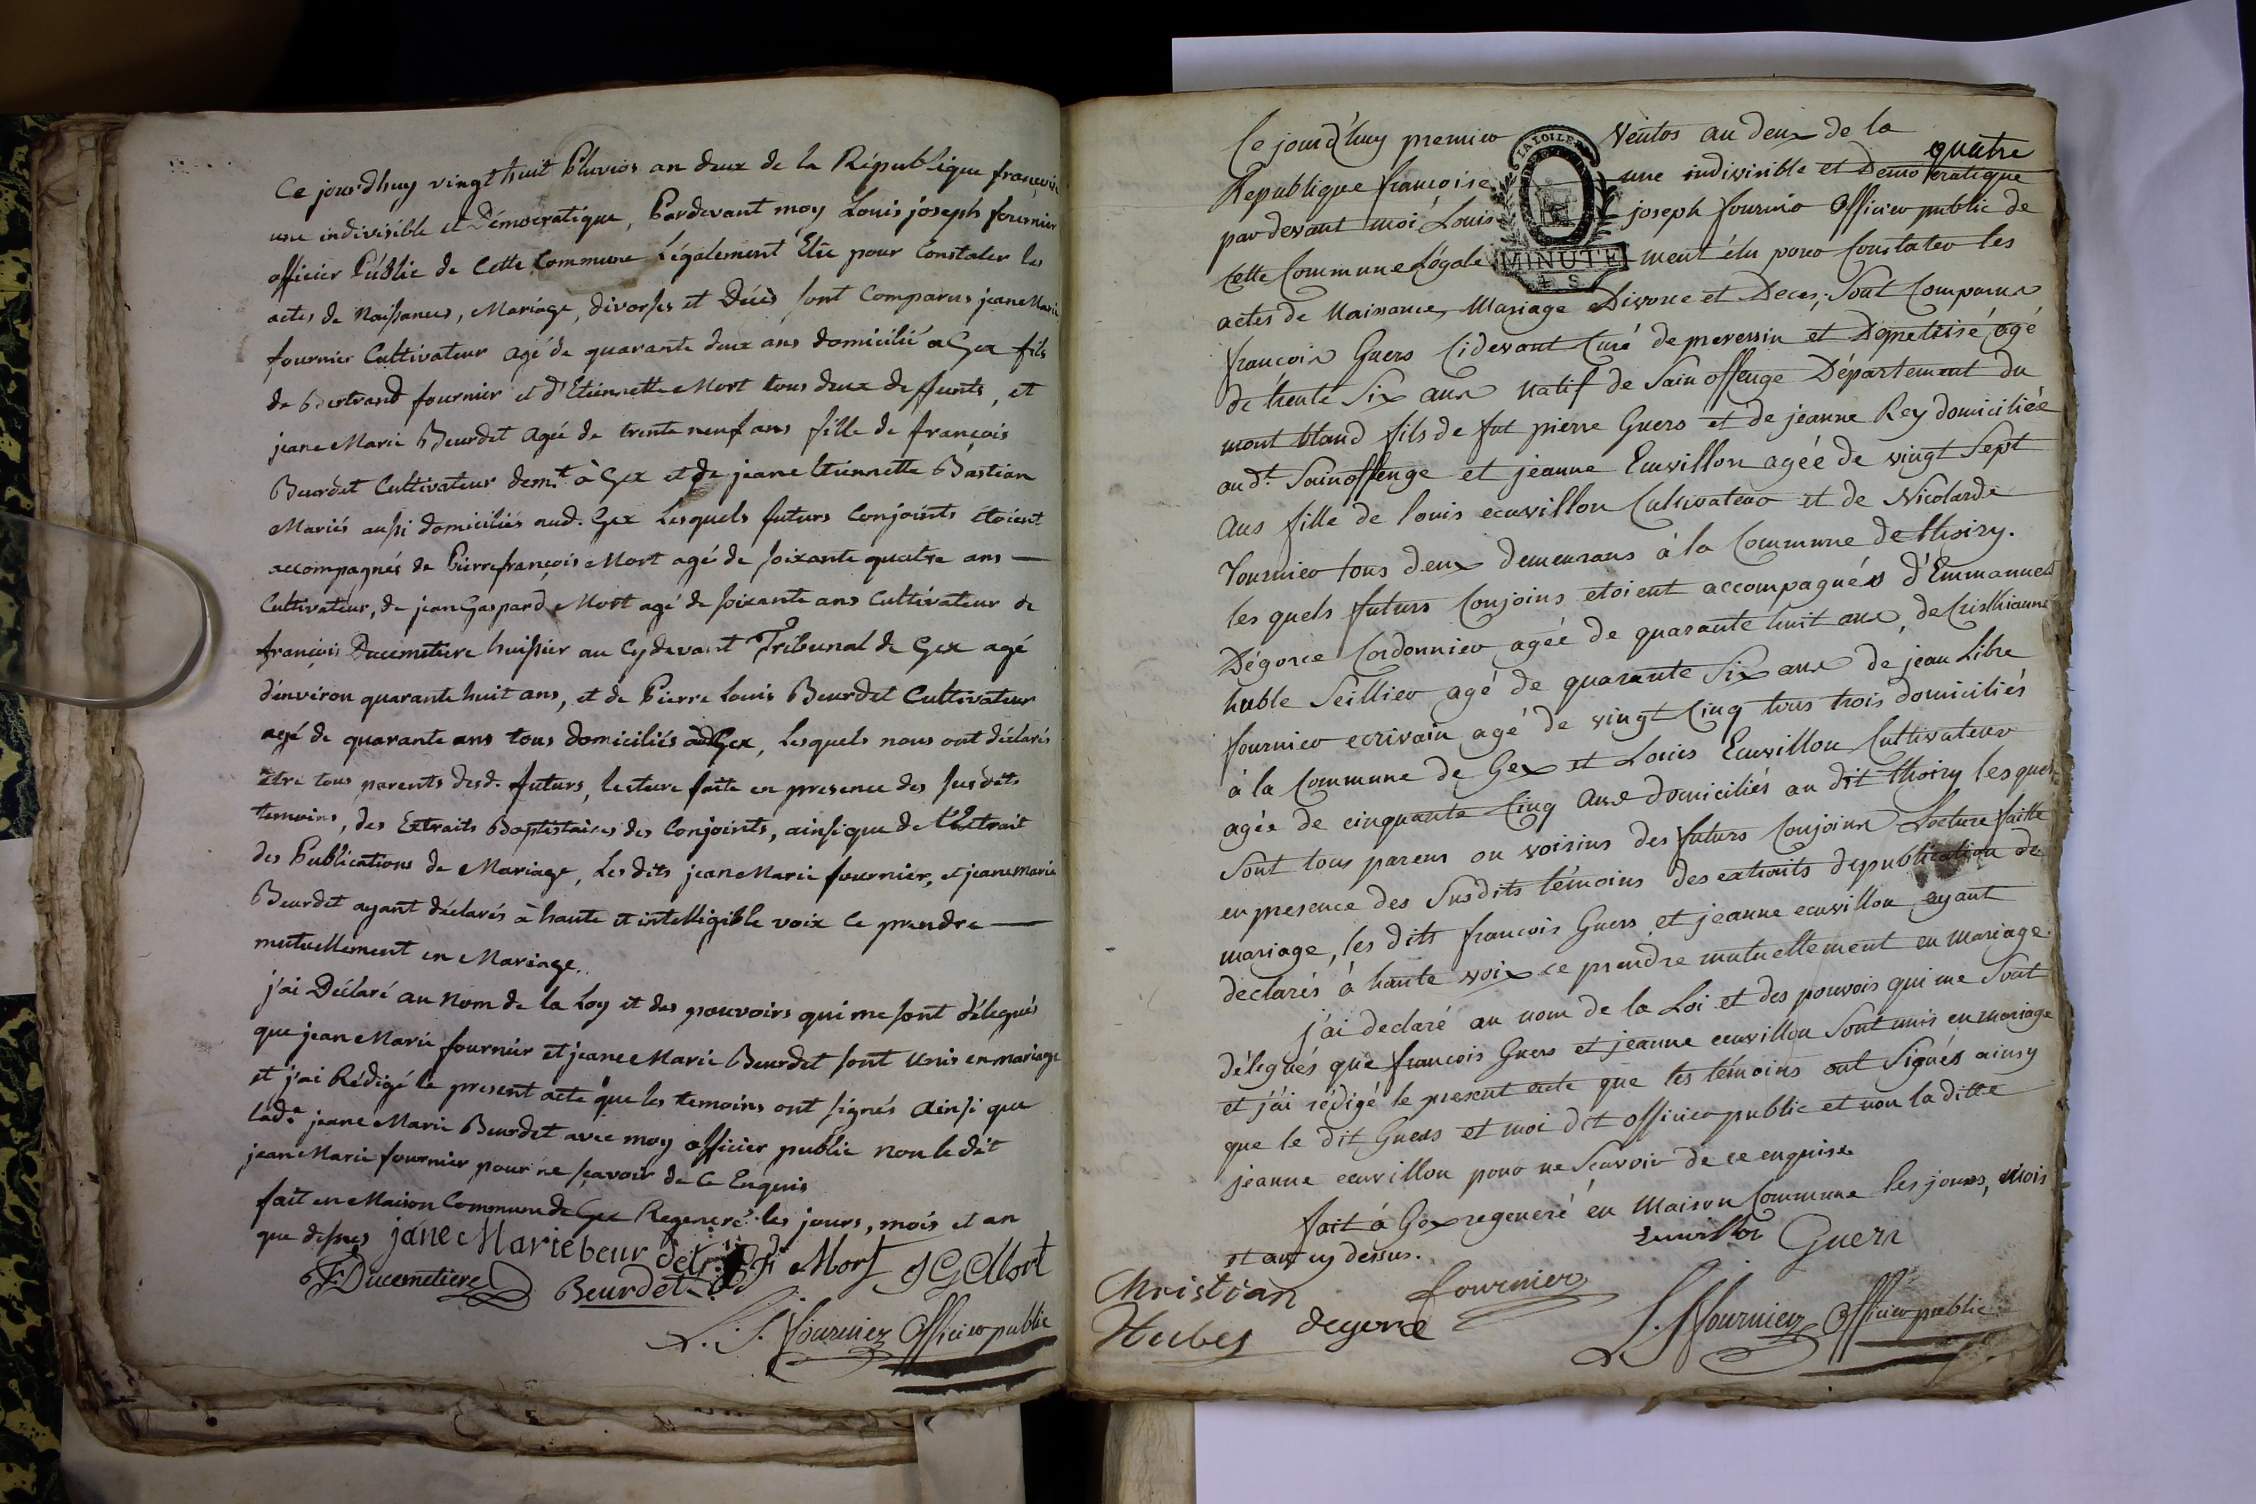 Ce jourd'huy vingt huit Pluvios an deux de la République françoise
une indivisible et Démocratique, Pardevant moy Louis joseph fournier
officier Public de Cette Commune Légalement Elu pour Constater les
actes de Naissances, Mariage, divorses et Décès sont Comparus jean Marie
fournier Cultivateur agé de quarante deux ans domicilié a Gex fils
de Bertrand fournier et d'Etiennette Mort tous deux deffunts, et
jeane Marie Beurdet agée de trente neuf ans fille de françois
Beurdet Cultivateur demt à Gex et de jeane Etiennette Bastian
Mariés aussi domiciliés aud. Gex Lesquels futurs Conjoints étoient
accompagnés de Pierrefrançois Mort agé de soixante quatre ans
Cultivateur, de jean Gaspard Mort agé de soixante ans Cultivateur de
françois Ducemetiere huissier au Cydevant Tribunal de Gex agé
d'environ quarante huit ans, et de Pierre Louis Beurdet Cultivateur
agé de quarante ans tous domiciliés aud Gex, Lesquels nous ont déclarés
être tous parents desd. futurs, lecture faite en presence des susdits
temoins, des Extraits Baptistaires des Conjoints, ainsi que de l'Extrait
des Publications de Mariage, Les dits jean Marie fournier, et jeane marie
Beurdet ayant déclarés à haute et intelligible voix Ce prendre
mutuellement en Mariage.
j'ai Déclaré au Nom de la Loy et des pouvoirs qui me sont délegués
que jean Marie fournier et jeane Marie Beurdet sont unis en mariage
et j'ai Rédigé le present acte que les temoins ont signés Ainsi que
lade jeane Marie Beurdet avec moy officier public non le dit
jean Marie fournier pour ne sçavoir de Ce Enquis
fait en Maison Commune de Gex Regeneré les jours, mois et an
que dessus jane Marie beurdet P fs Mort JG Mort
F Ducemetiere Beurdet
L. J. fournier Officier public
Ce jourd'huy premier Ventos an deux de la
quatre
Republique françoise une indivisible et Democratique
par devant moi Louis joseph fournier Officier public de
LA LOI LE R
MINUTE
4 S
cette Commune Légalement élu pour Constater les
actes de Naissance, Mariage Divorce et Deces; Sont Comparus
francois Guers Cidevant Curé de prevessin et Depretrisé agé
de trente Six ans natif de Sain offenge Département du
mont bland fils de fut pierre Guers et de jeanne Rey domiciliée
audt. Sain offenge et jeanne Ecuvillon agée de vingt Sept
ans fille de louis ecuvillon Cultivateur et de Nicolarde
Tournier tous deux demeurans à la Commune de thoiry.
les quels futurs Conjoins etoient accompagnés d'Emmanuel
Dégorce Cordonnier agée de quarante huit ans, de Cristhianne
huble Seillier agé de quarante Six ans de jean Libre
fournier ecrivain agé de vingt Cinq tous trois domiciliés
à la Commune de Gex et Louis Ecuvillon Cultivateur
agée de cinquante Cinq ans domiciliés au dit thoiry les quels
Sont tous parens ou voisins des futurs Conjoins Lecture faitte
en presence des Susdits témoins des extraits de publication de
mariage, les dits francois Guers et jeanne ecuvillon ayant
declarés à haute voix ce prendre mutuellement en mariage.
j'ai declaré au nom de la Loi et des pouvois qui me Sont
délegués que francois Guers et jeanne ecuvillon Sont unis en mariage
et j'ai rédigé le present acte que les témoins ont Signés ainsy
que le dit Guers et moi dit officier public et non la ditte
jeanne ecuvillon pour ne Scavoir de ce enquise
fait à Gex regeneré en Maison Commune les jours, mois
et an cy dessus. Ecuvillon Guers
Christian fournier
Hubles degorce L. J fournier Officier public